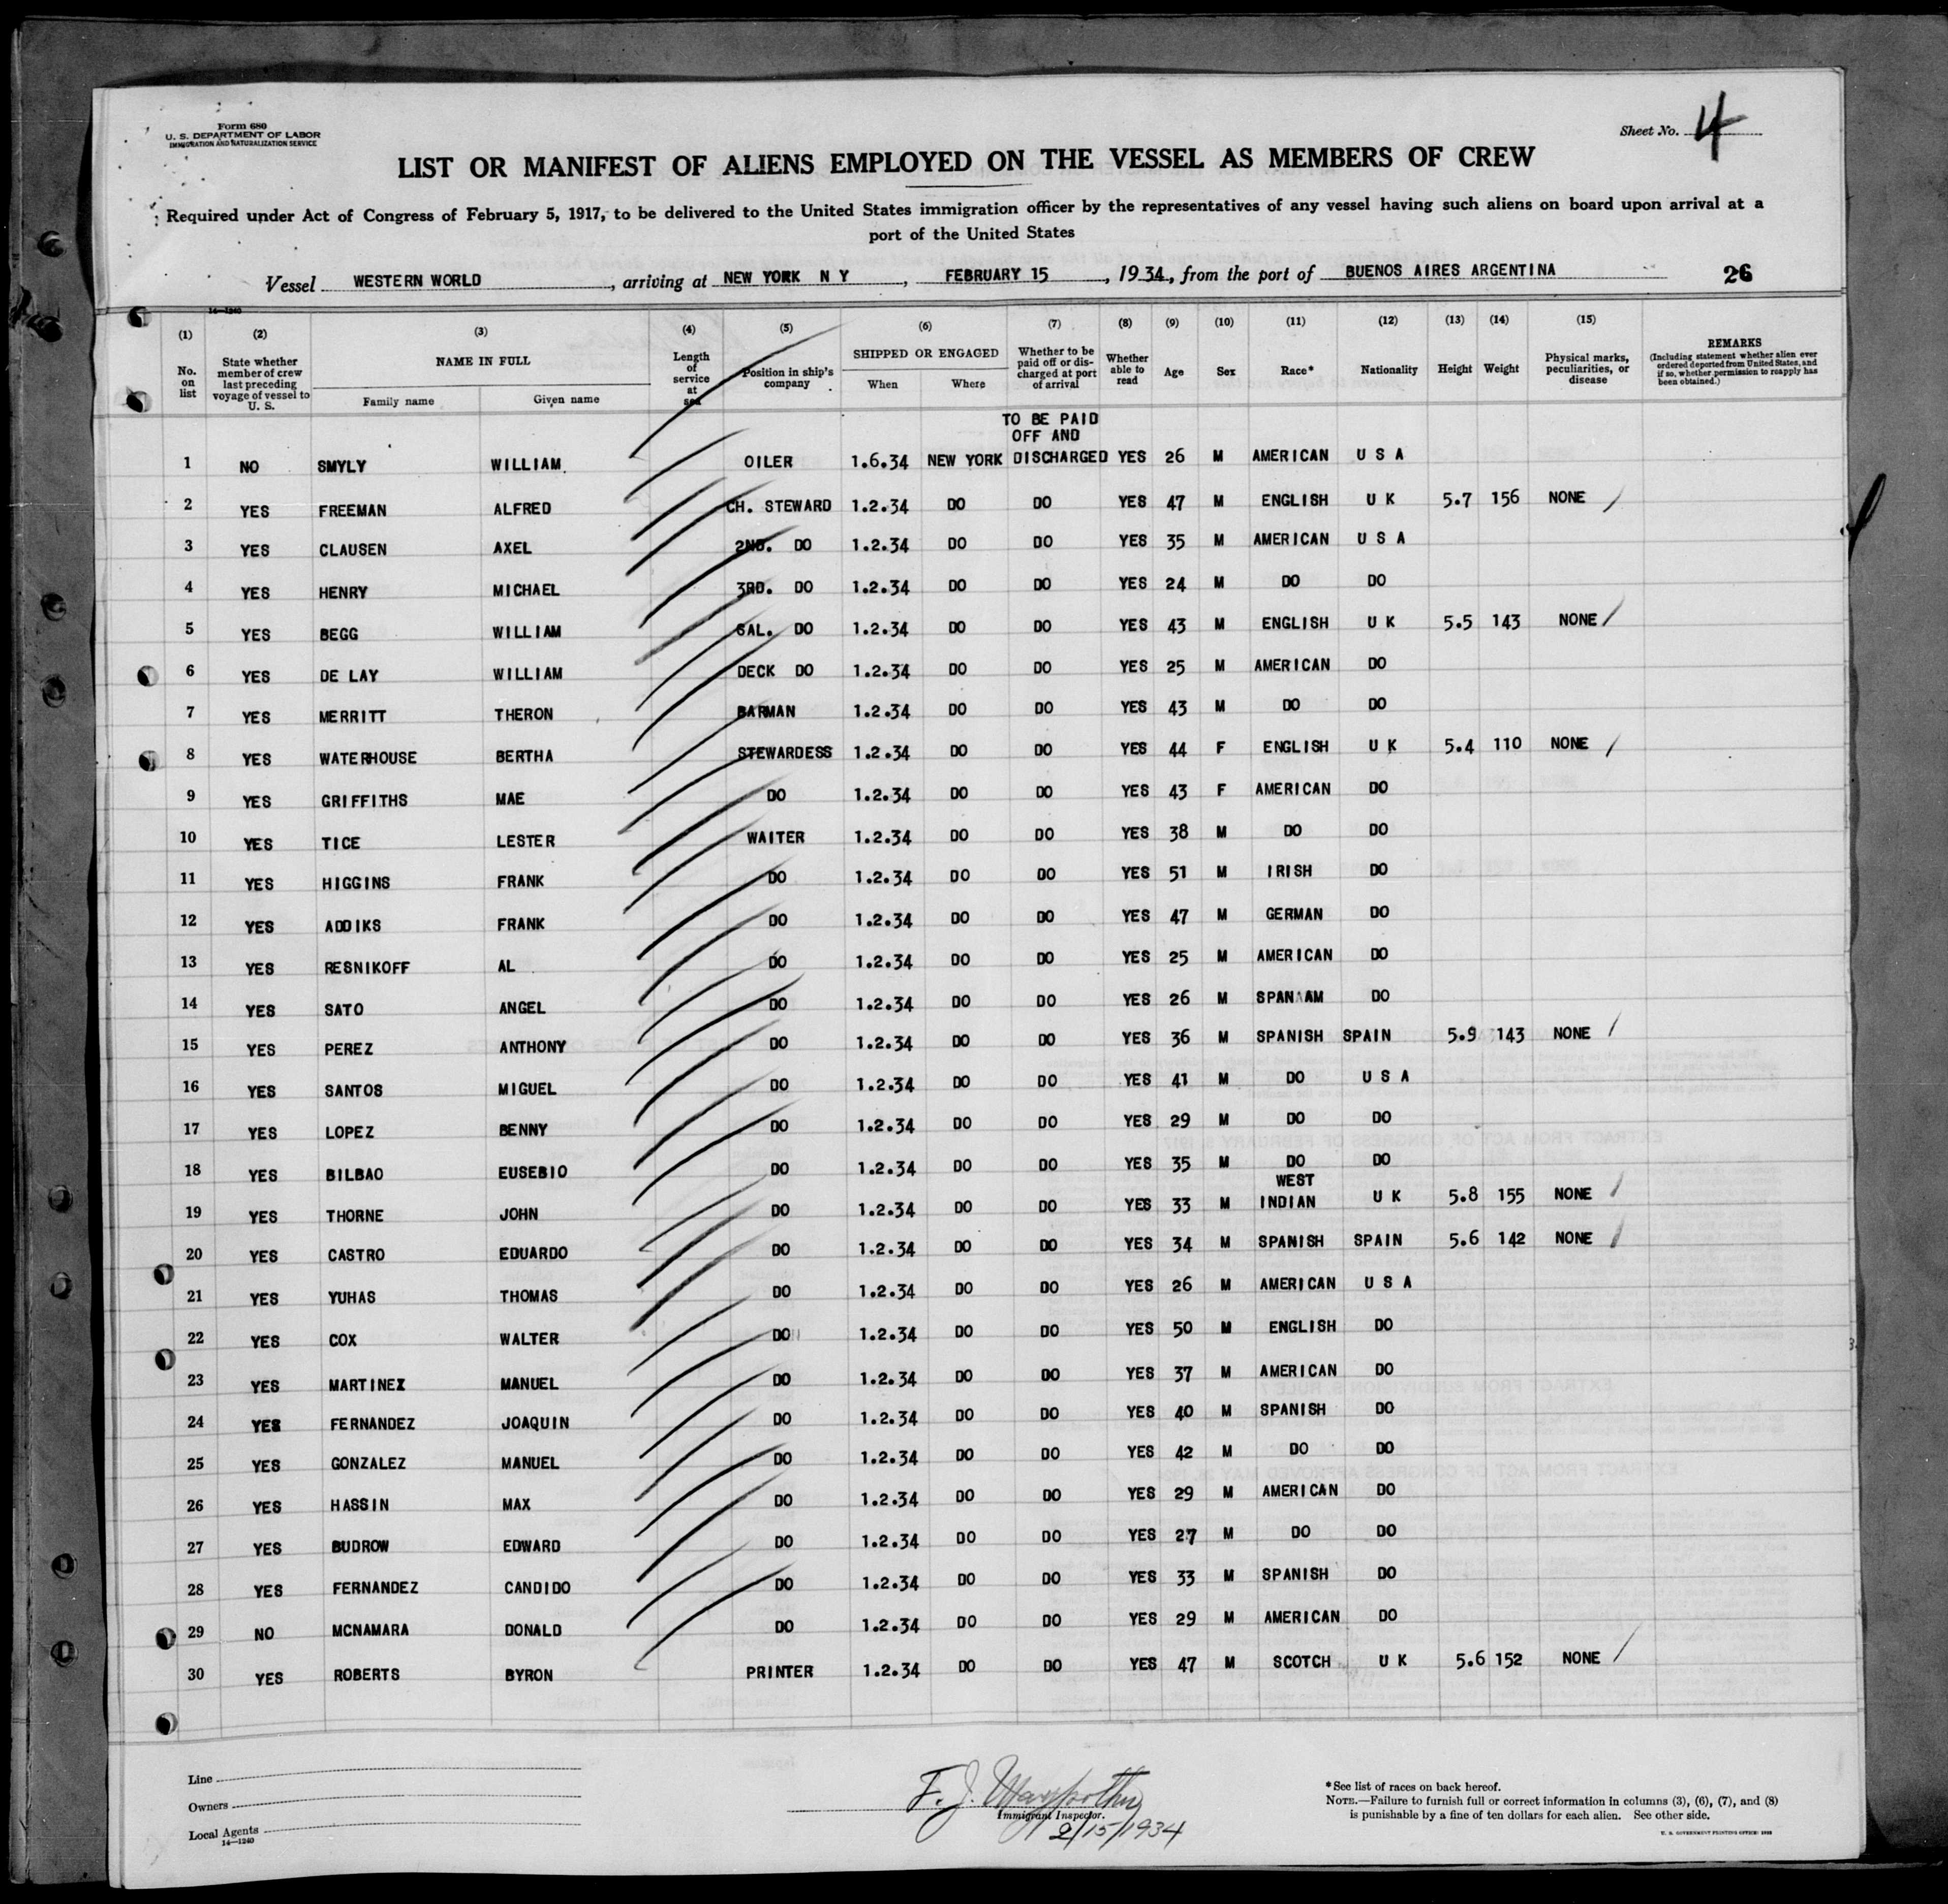 Form 680
U. S. DEPARTMENT OF LABOR
IMMIGRATION AND NATURALIZATION SERVICE
Sheet No. 4
LIST OR MANIFEST OF ALIENS EMPLOYED ON THE VESSEL AS MEMBERS OF CREW
Required under Act of Congress of February 5, 1917, to be delivered to the United States immigration officer by the representatives of any vessel having such aliens on board upon arrival at a
port of the United States
Vessel WESTERN WORLD, arriving at NEW YORK N Y, FEBRUARY 15, 1934, from the port of BUENOS AIRES ARGENTINA 26
14—1240
(1) (2) (3) (4) (5) (6) (7) (8) (9) (10) (11) (12) (13) (14) (15)
No. on list State whether member of crew last preceding voyage of vessel to U. S. NAME IN FULL Family name Given name Length of service at sea Position in ship's company SHIPPED OR ENGAGED When Where Whether to be paid off or discharged at port of arrival Whether able to read Age Sex Race* Nationality Height Weight Physical marks, peculiarities, or disease REMARKS (Including statement whether alien ever ordered deported from United States, and if so, whether permission to reapply has been obtained.)
TO BE PAID
OFF AND
1 NO SMYLY WILLIAM. OILER 1.6.34 NEW YORK DISCHARGED YES 26 M AMERICAN U S A
2 YES FREEMAN ALFRED CH. STEWARD 1.2.34 DO DO YES 47 M ENGLISH U K 5.7 156 NONE
3 YES CLAUSEN AXEL 2ND. DO 1.2.34 DO DO YES 35 M AMERICAN U S A
4 YES HENRY MICHAEL 3RD. DO 1.2.34 DO DO YES 24 M DO DO
5 YES BEGG WILLIAM GAL. DO 1.2.34 DO DO YES 43 M ENGLISH U K 5.5 143 NONE
6 YES DE LAY WILLIAM DECK DO 1.2.34 DO DO YES 25 M AMERICAN DO
7 YES MERRITT THERON BARMAN 1.2.34 DO DO YES 43 M DO DO
8 YES WATERHOUSE BERTHA STEWARDESS 1.2.34 DO DO YES 44 F ENGLISH U K 5.4 110 NONE
9 YES GRIFFITHS MAE DO 1.2.34 DO DO YES 43 F AMERICAN DO
10 YES TICE LESTER WAITER 1.2.34 DO DO YES 38 M DO DO
11 YES HIGGINS FRANK DO 1.2.34 DO DO YES 51 M IRISH DO
12 YES ADDIKS FRANK DO 1.2.34 DO DO YES 47 M GERMAN DO
13 YES RESNIKOFF AL DO 1.2.34 DO DO YES 25 M AMERICAN DO
14 YES SATO ANGEL DO 1.2.34 DO DO YES 26 M SPAN AM DO
15 YES PEREZ ANTHONY DO 1.2.34 DO DO YES 36 M SPANISH SPAIN 5.9 143 NONE
16 YES SANTOS MIGUEL DO 1.2.34 DO DO YES 41 M DO U S A
17 YES LOPEZ BENNY DO 1.2.34 DO DO YES 29 M DO DO
18 YES BILBAO EUSEBIO DO 1.2.34 DO DO YES 35 M DO DO
WEST
19 YES THORNE JOHN DO 1.2.34 DO DO YES 33 M INDIAN U K 5.8 155 NONE
20 YES CASTRO EDUARDO DO 1.2.34 DO DO YES 34 M SPANISH SPAIN 5.6 142 NONE
21 YES YUHAS THOMAS DO 1.2.34 DO DO YES 26 M AMERICAN U S A
22 YES COX WALTER DO 1.2.34 DO DO YES 50 M ENGLISH DO
23 YES MARTINEZ MANUEL DO 1.2.34 DO DO YES 37 M AMERICAN DO
24 YES FERNANDEZ JOAQUIN DO 1.2.34 DO DO YES 40 M SPANISH DO
25 YES GONZALEZ MANUEL DO 1.2.34 DO DO YES 42 M DO DO
26 YES HASSIN MAX DO 1.2.34 DO DO YES 29 M AMERICAN DO
27 YES BUDROW EDWARD DO 1.2.34 DO DO YES 27 M DO DO
28 YES FERNANDEZ CANDIDO DO 1.2.34 DO DO YES 33 M SPANISH DO
29 NO MCNAMARA DONALD DO 1.2.34 DO DO YES 29 M AMERICAN DO
30 YES ROBERTS BYRON PRINTER 1.2.34 DO DO YES 47 M SCOTCH U K 5.6 152 NONE
Line
Owners
Local Agents
14—1240
F. J.
Immigrant Inspector.
2/15/1934
*See list of races on back hereof.
NOTE.—Failure to furnish full or correct information in columns (3), (6), (7), and (8)
is punishable by a fine of ten dollars for each alien. See other side.
U. S. GOVERNMENT PRINTING OFFICE